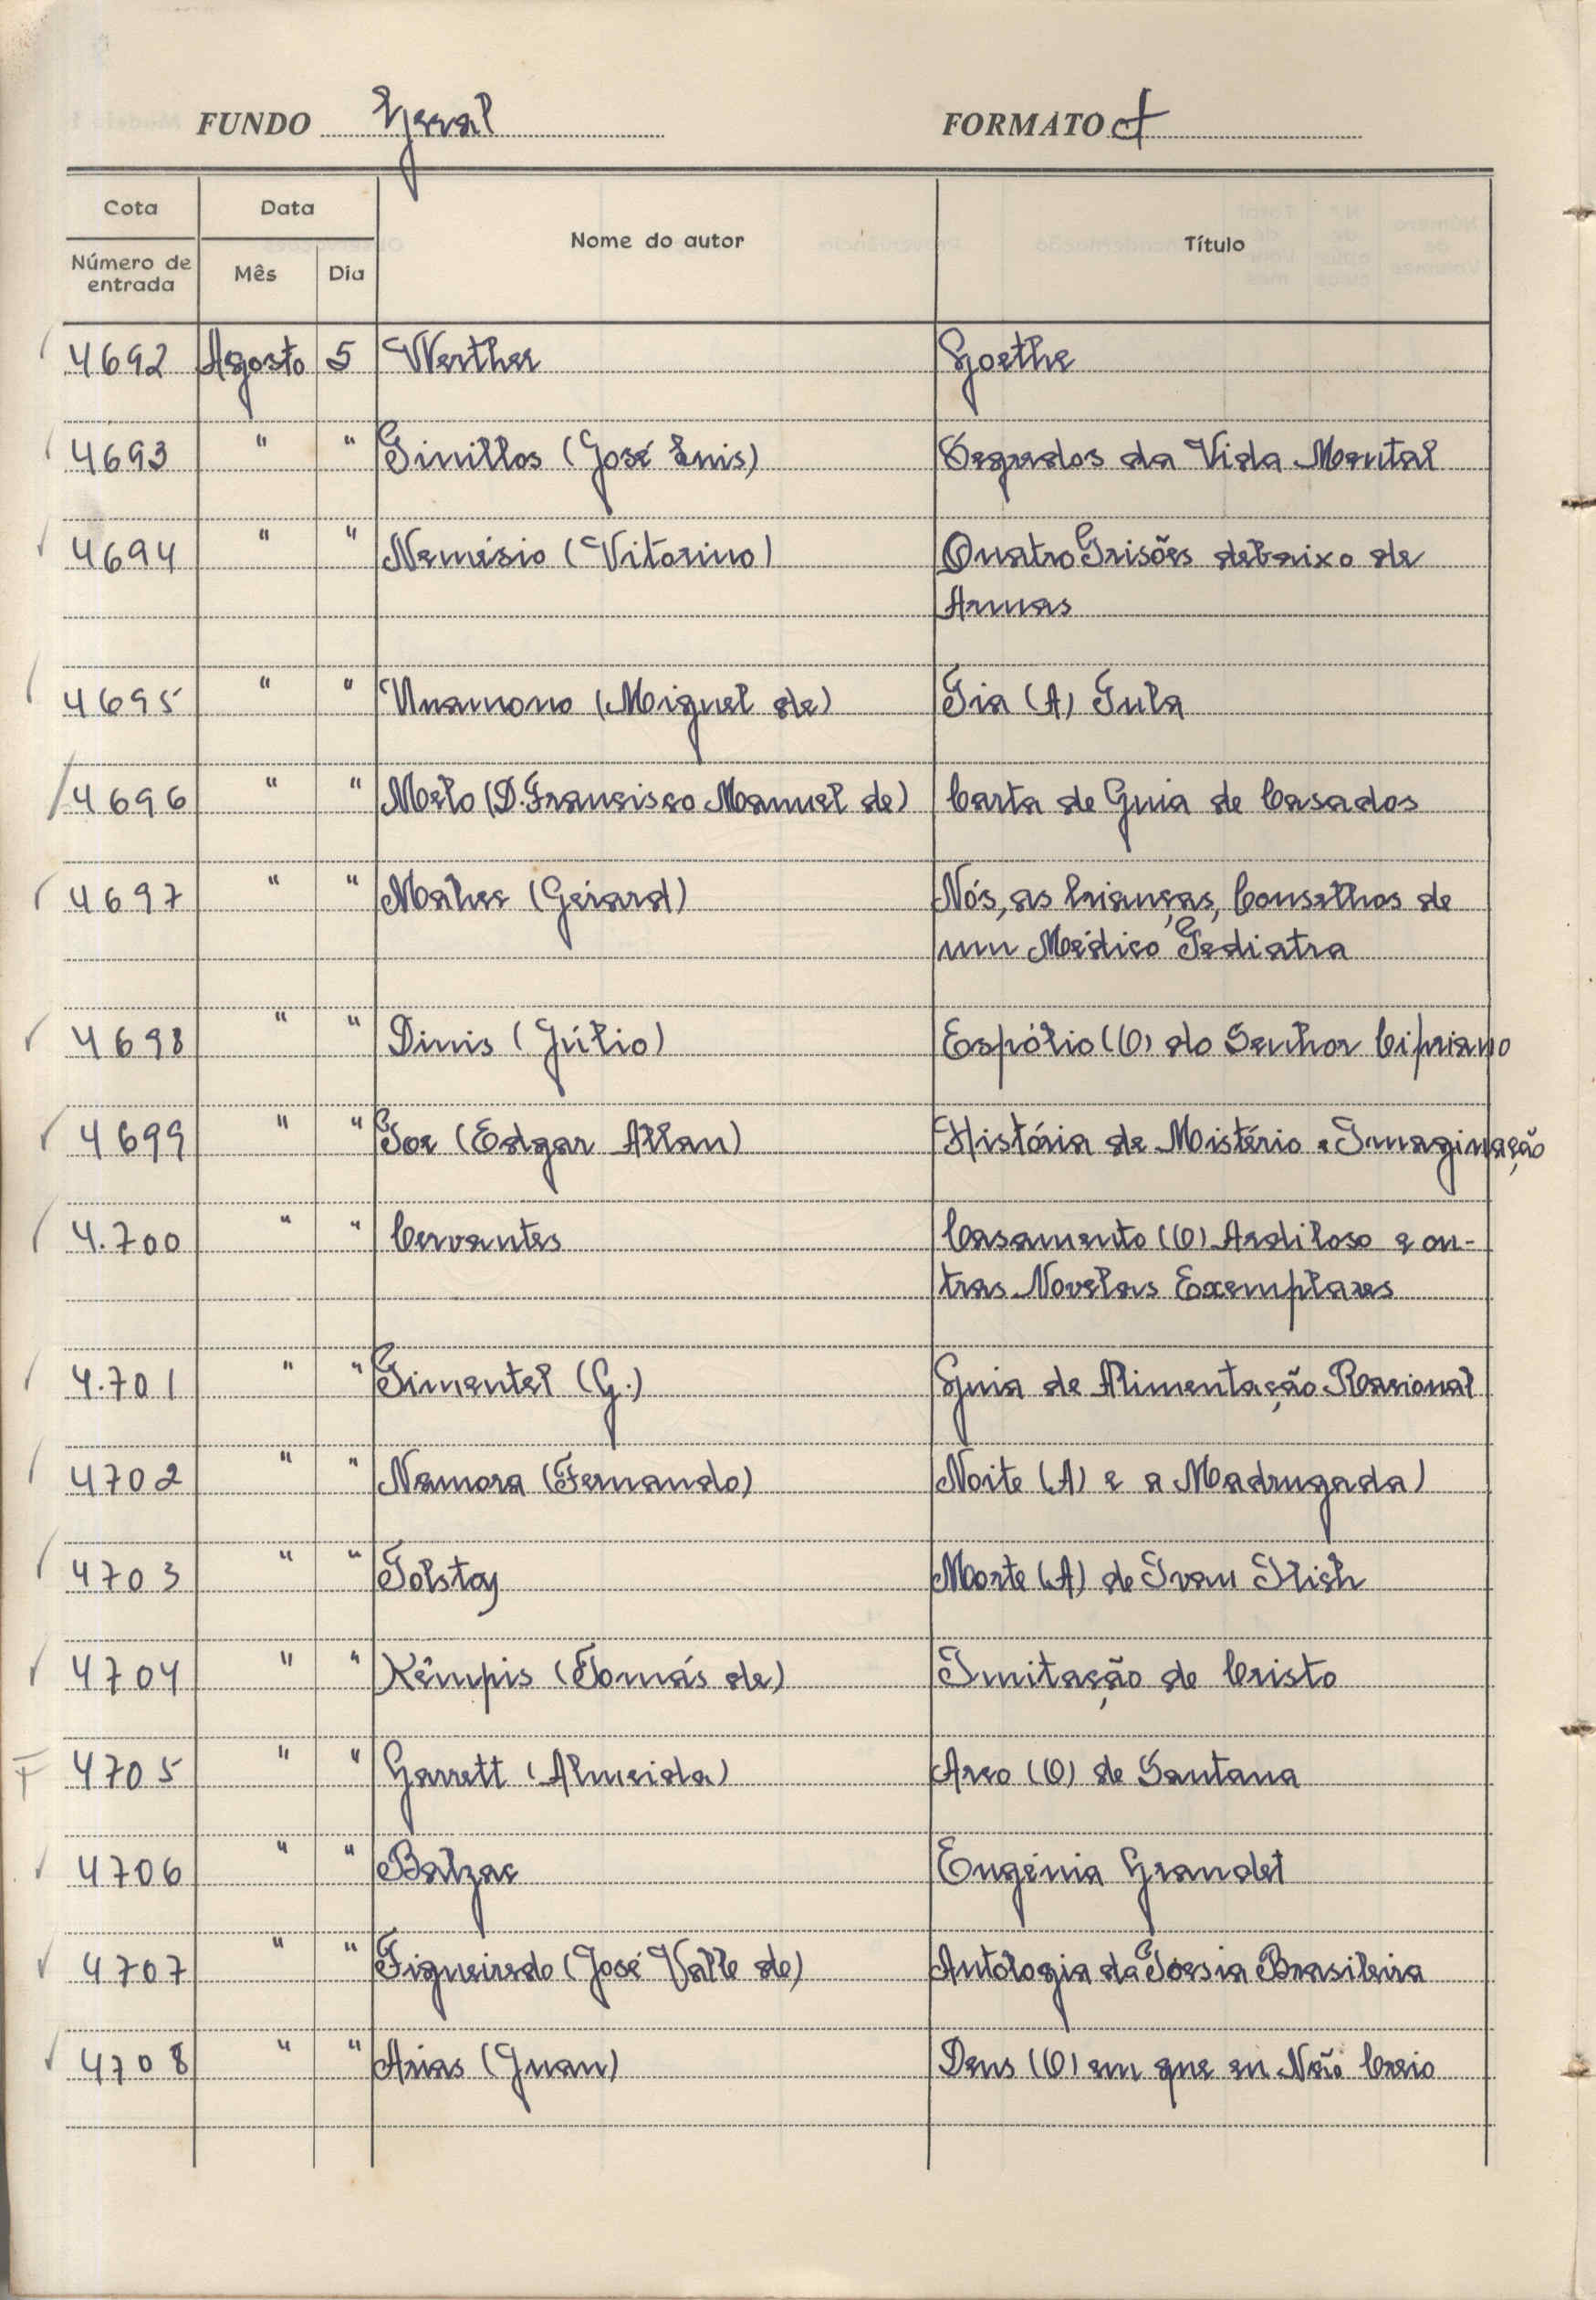 FUNDO Geral FORMATO
Cota Data Nome do autor Título
Número de entrada Mês Dia
4692 Agosto 5 Werther Goethe
4693 " " Pinillos (José Luis) Segredos da Vida Mental
4694 " " Nemésio (Vitorino) Quatro Prisões debaixo de
Armas
4695 " " Unamono (Miguel de) Tia (A) Tula
4696 " " Melo (D. Francisco Manuel de) Carta de Guia de Casados
4697 " " (Gérard) Nós, as Crianças, Conselhos de
um Médico Pediatra
4698 " " Dinis (Júlio) Espólio (O) do Senhor Cipriano
4699 " " Poe (Edgar Allan) História de Mistério e Imaginação
4.700 " " Cervantes Casamento (O) Ardiloso e ou-
tras Novelas Exemplares
4.701 " " Pimentel (G.) Guia de Alimentação Racional
4702 " " Namora (Fernando) Noite (A) e a Madrugada)
4703 " " Tolstoy Morte (A) de Ivan Ilich
4704 " " Kêmpis (Tomás de) Imitação de Cristo
F 4705 " " Garrett (Almeida) Arco (O) de Santana
4706 " " Balzac Eugénia Grandet
4707 " " Figueiredo (José Valle de) Antologia da Poesia Brasileira
4708 " " Arias (Juan) Deus (O) em que eu Não Creio